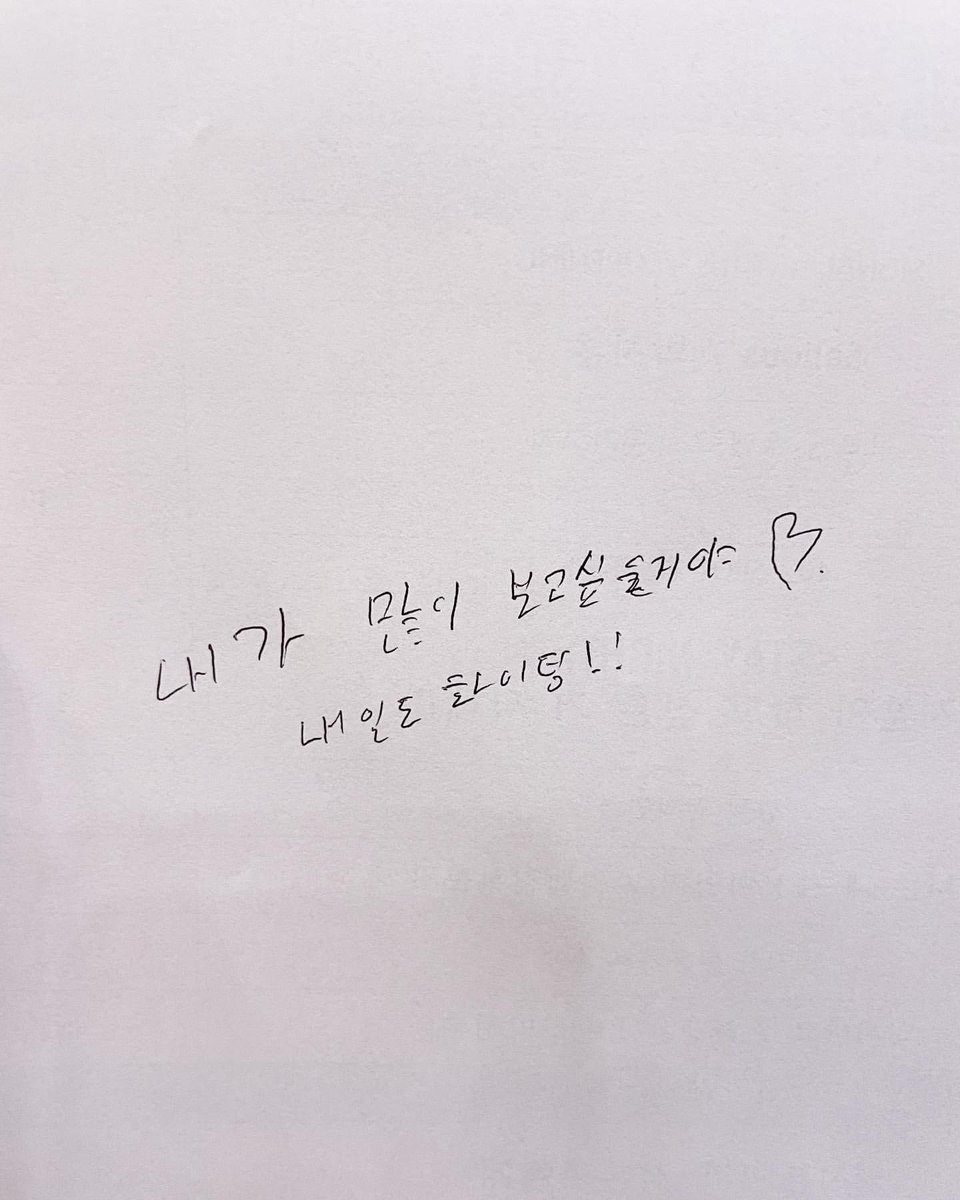 내가 많이 보고싶을거야 ♡.
내일도 화이팅!!